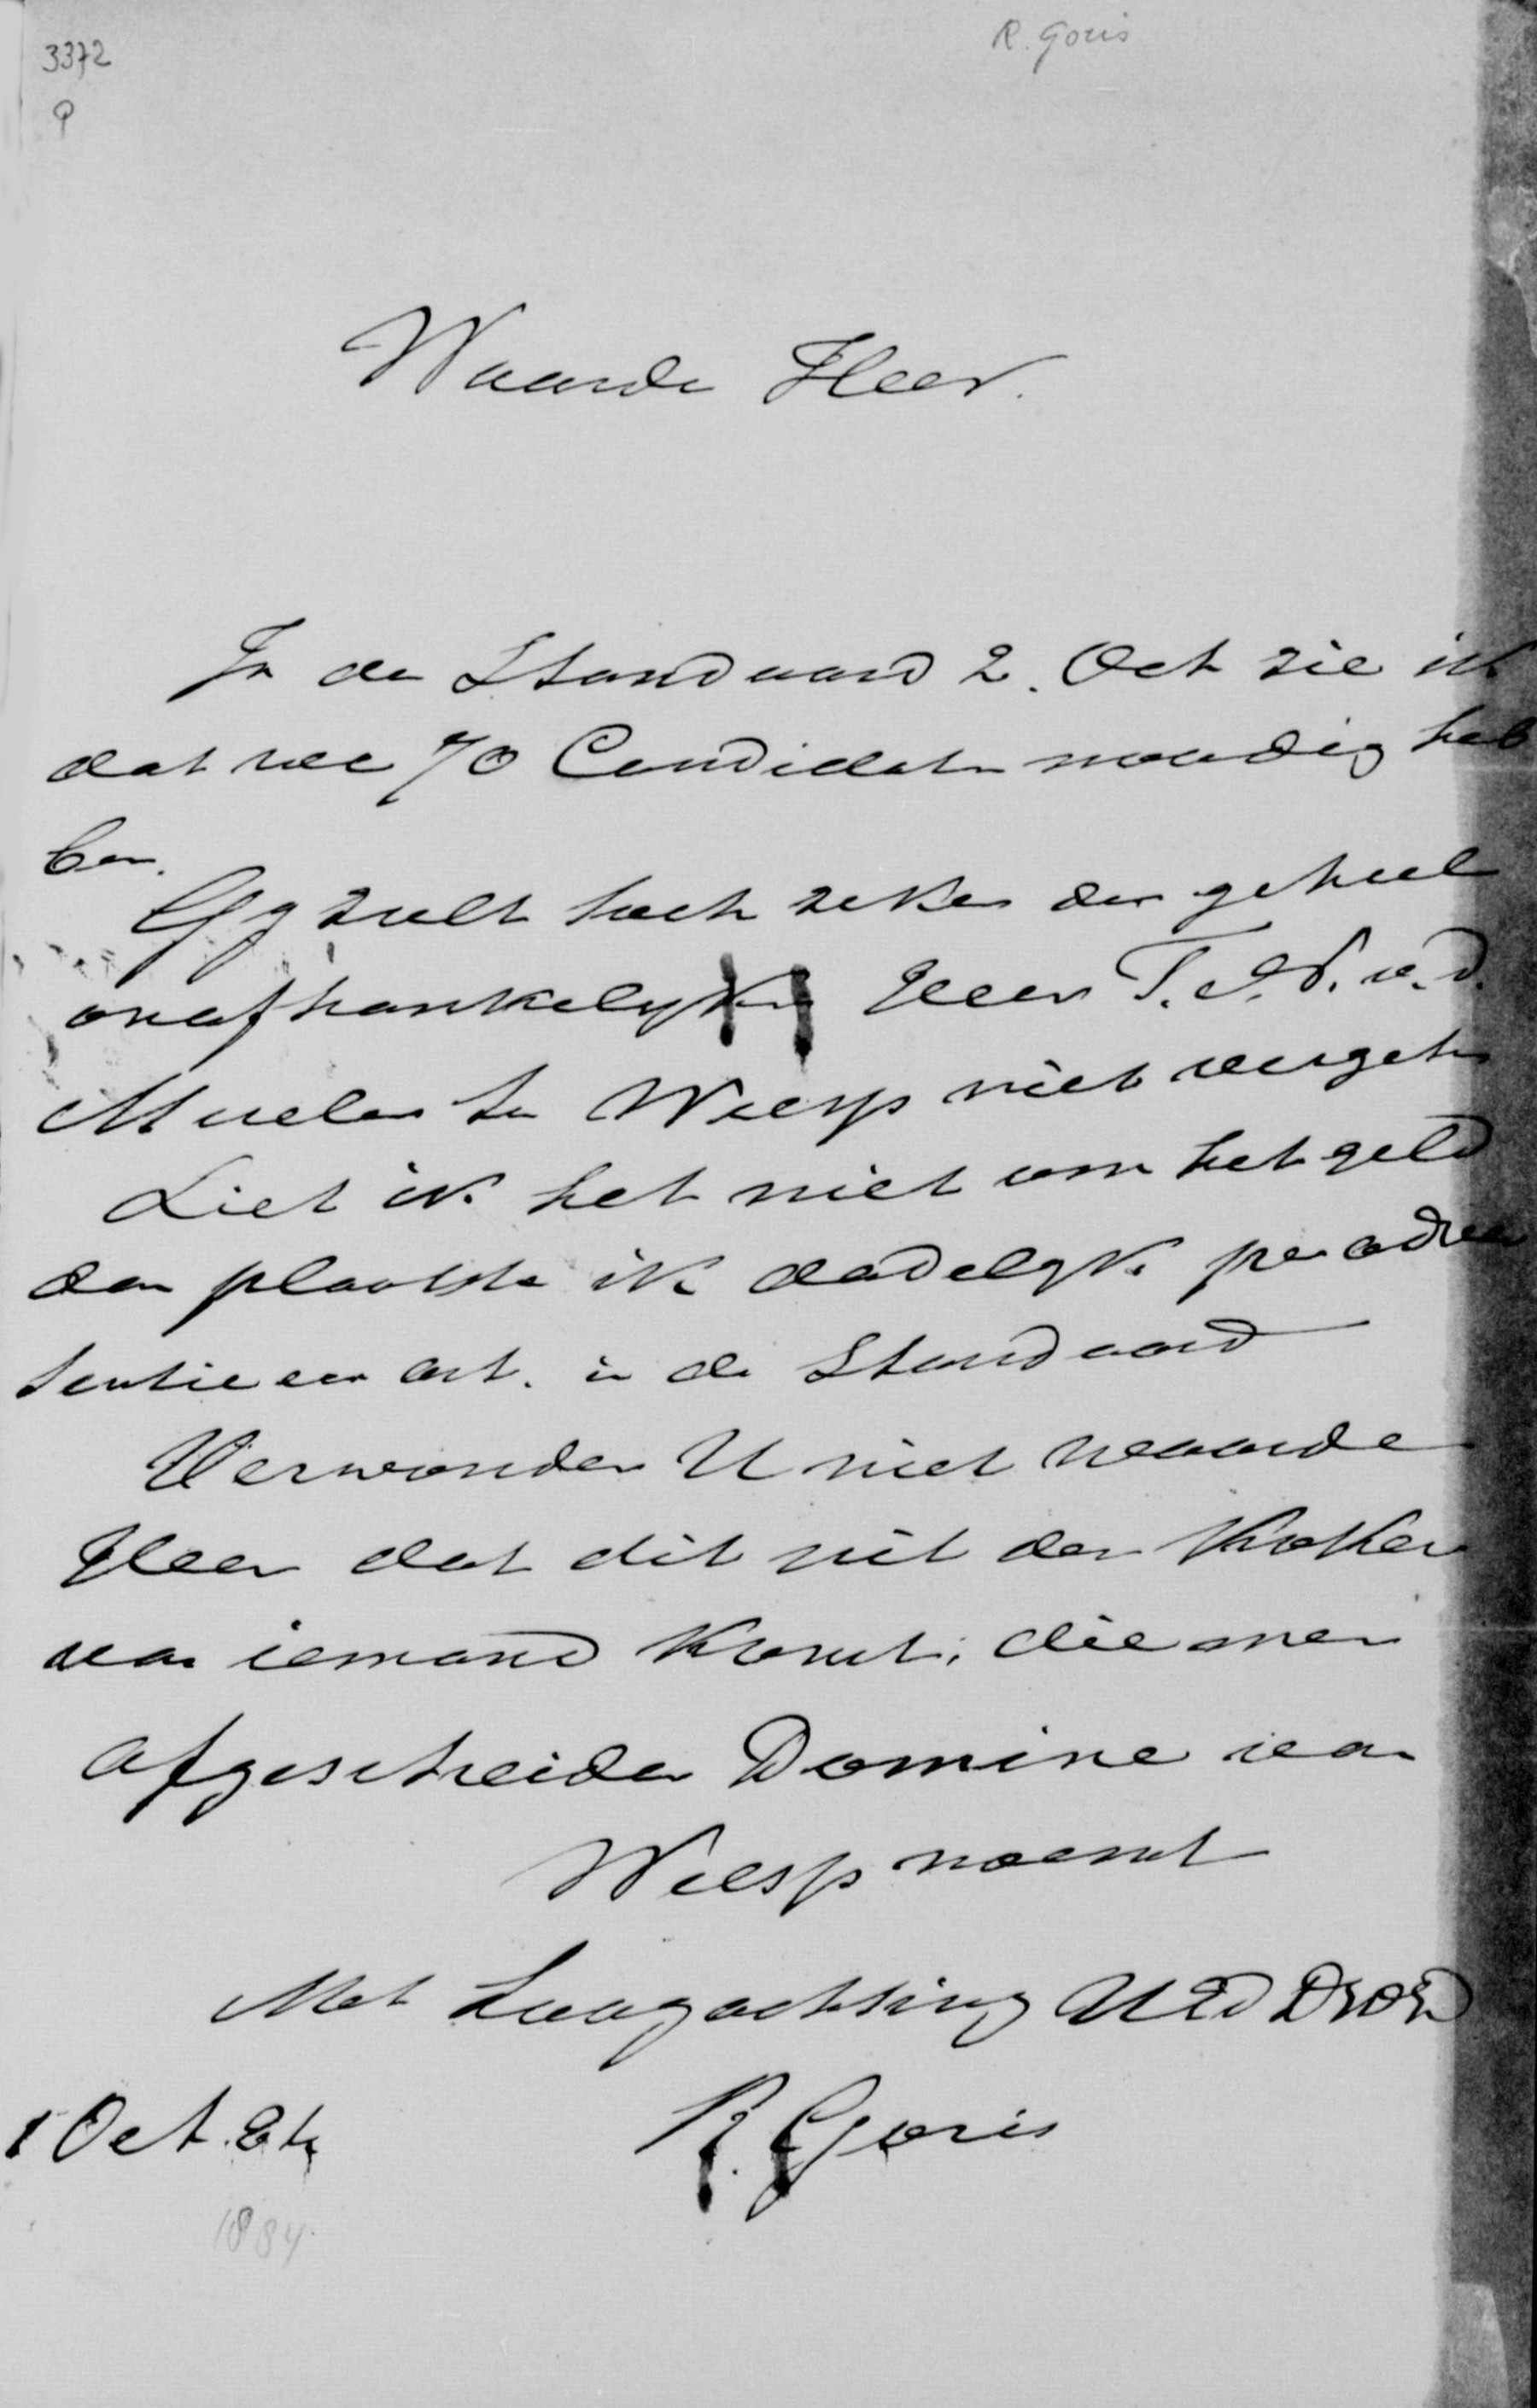 3372
R. Goris
Waarde Heer.
In de Standaard 2. Oct zie ik
dat we 70 Candidaten noodig heb
ben.
Gy zult toch zeker den geheel
onafhankelyken Heer
te Weesp niet vergeten
Liet ik het niet om het geld
dan plaatste ik dadelyk per adver
tentie een art. in de Standaard
Verwonder U niet waarde
Heer dat dit uit den Koker
van iemand Komt, die men
afgescheiden Domine van
Weesp noemt
Met Hoogachting UEd
1 Oct. 84 R. Goris
1884.